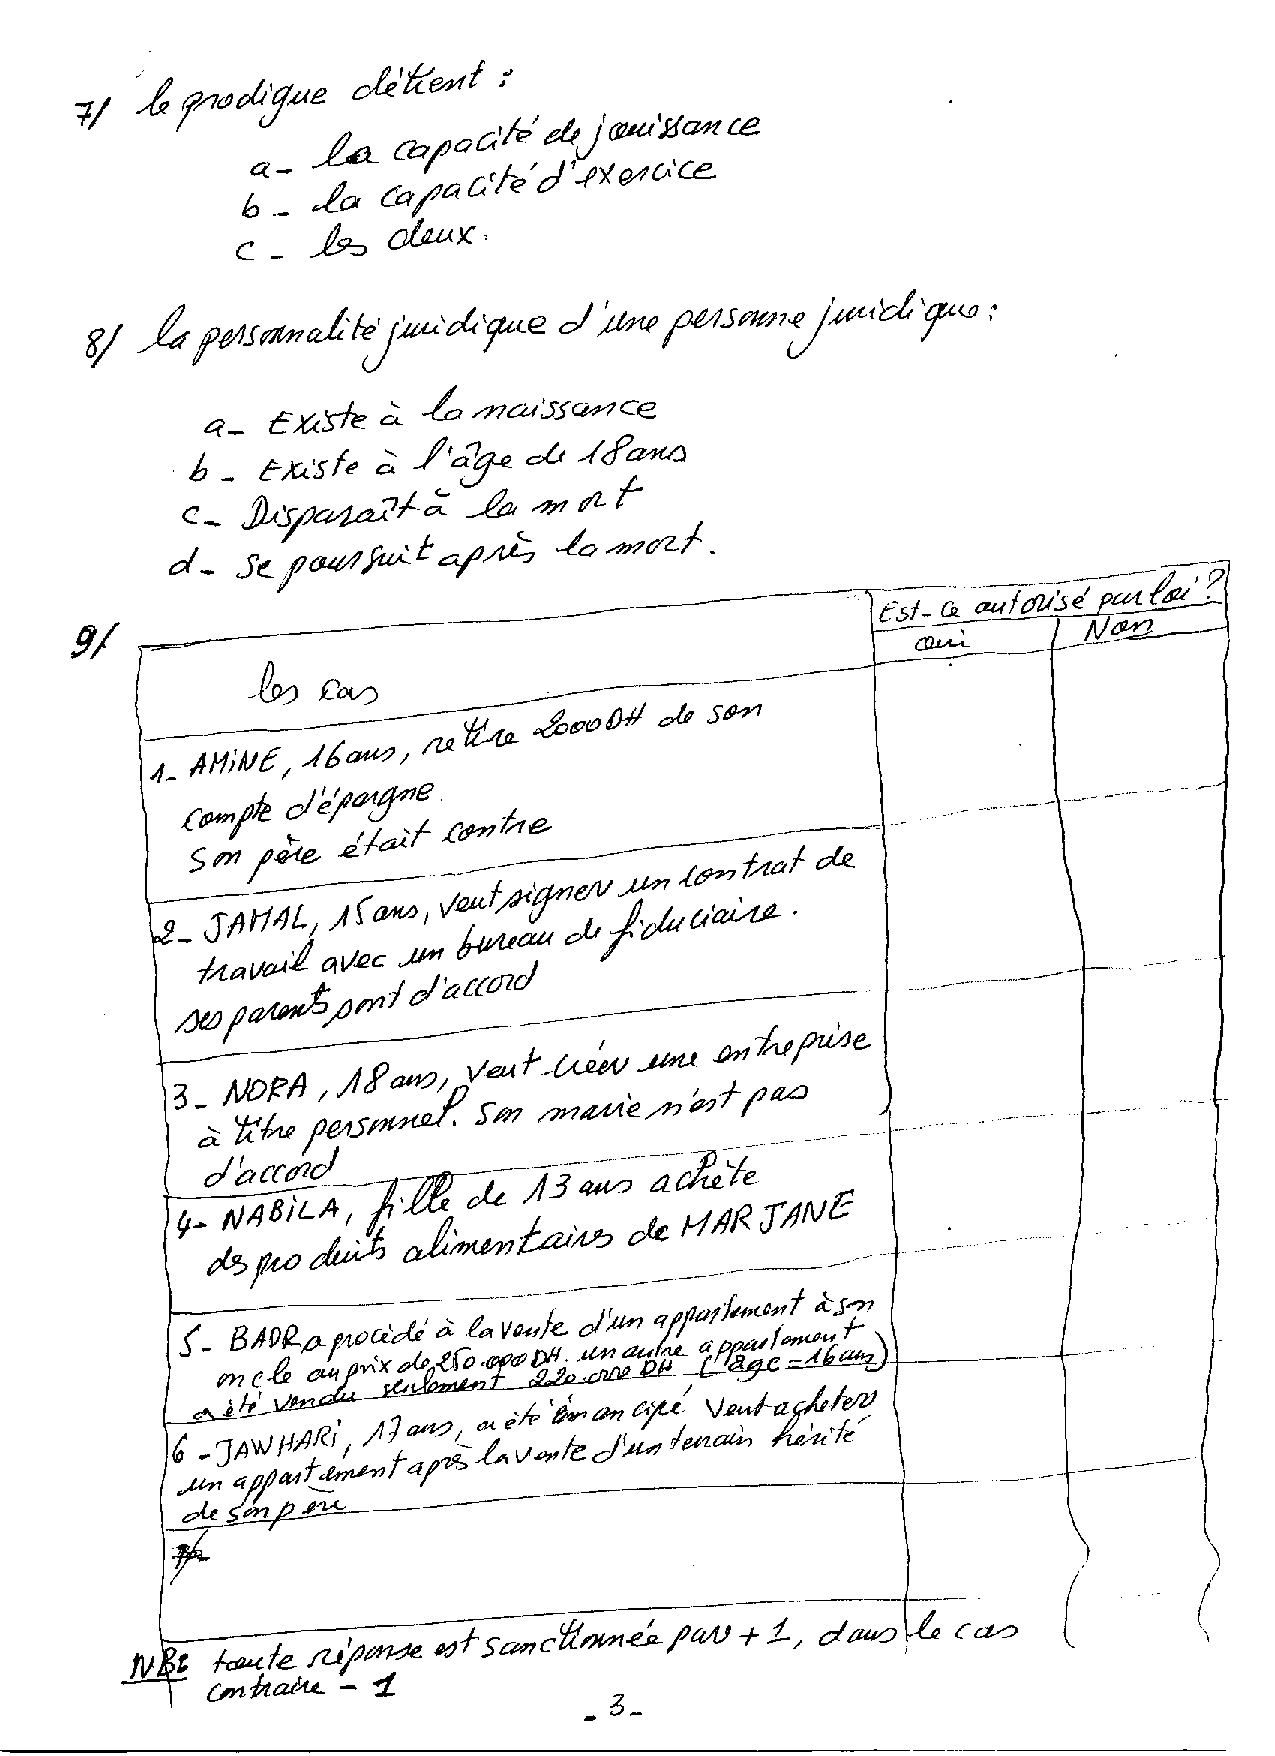 7/ le prodigue détient :
a- la capacité de jouissance
b- la capacité d'exercice
c- les deux.
8/ la personnalité juridique d'une personne juridique :
a- Existe à la naissance
b- Existe à l'âge de 18 ans
c- Disparaît à la mort
d- se poursuit après la mort.
9/
Est-ce autorisé par loi ?
oui Non
les cas
1- AMiNE, 16 ans, retire 2000 DH de son
compte d'épargne
son père était contre
2- JAMAL, 15 ans, veut signer un contrat de
travail avec un bureau de fiduciaire.
ses parents sont d'accord
3- NORA, 18 ans, veut créer une entreprise
à titre personnel. Son marie n'est pas
d'accord
4- NABiLA, fille de 13 ans achète
des produits alimentaires de MARJANE
5- BADR a procédé à la vente d'un appartement à son
oncle au prix de 250.000 DH. un autre appartement
a été vendu seulement 220.000 DH (âge = 16 ans)
6- JAWHARi, 17 ans, a été émancipé veut acheter
un appartement après la vente d'un terrain hérité
de son père
NB: toute réponse est sanctionnée par +1, dans le cas
contraire -1
- 3 -